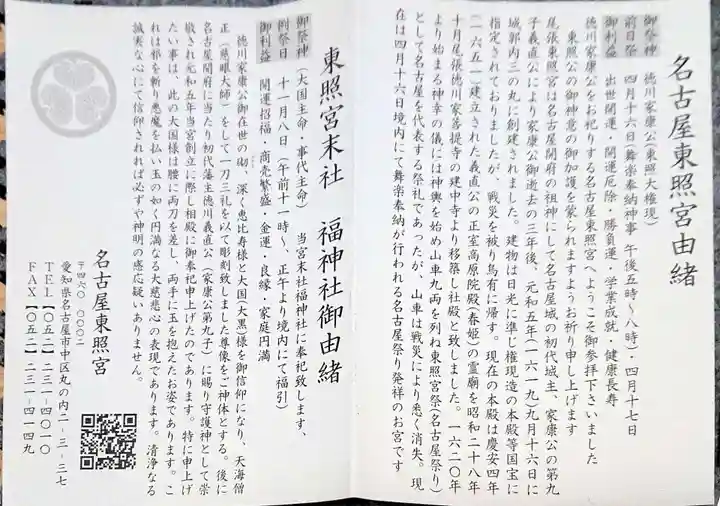 名古屋東照宮由緒
御祭神　徳川家康公(東照大権現)
前日祭　四月十六日(舞楽奉納神事　午後五時～八時)・四月十七日
御利益　出世開運・開運厄除・勝負運・学業成就・健康長寿
徳川家康公をお祀りする名古屋東照宮へようこそ御参拝下さいました
東照公の御神意の御加護を蒙られますようお祈り申し上げます
尾張東照宮は名古屋開府の祖神にして名古屋城の初代城主、家康公の第九
子義直公により家康公御逝去の三年後、元和五年(一六一九)九月十六日に
城郭内三の丸に創建されました。建物は日光に準じ権現造の本殿等国宝に
指定されておりましたが、戦災を被り烏有に帰す。現在の本殿は慶安四年
(一六五一)建立された義直公の正室高原院殿(春姫)の霊廟を昭和二十八年
十月尾張徳川家菩提寺の建中寺より移築し社殿と致しました。一六二〇年
より始まる神幸の儀には神輿を始め山車九両を列ね東照宮祭(名古屋祭り)
として名古屋を代表する祭礼であったが、山車は戦災により悉く消失。現
在は四月十六日境内にて舞楽奉納が行われる名古屋祭り発祥のお宮です
東照宮末社　福神社御由緒
御祭神　(大国主命・事代主命)　当宮末社福神社に奉祀致します、
例祭日　十一月八日(午前十一時～、正午より境内にて福引)
御利益　開運招福・商売繁盛・金運・良縁・家庭円満
徳川家康公御在世の砌、深く恵比寿様と大国(大黒)様を御信仰になり、天海僧
正(慈眼大師)をして一刀三礼を以て彫刻致しました尊像をご神体とする。後に
名古屋開府に当たり初代藩主徳川義直公(家康公第九子)に賜り守護神として崇
敬され元和五年当宮創立に際し相殿に御奉祀申上げたのであります。特に申上げ
たい事は、此の大国様は腰に両刀を差し、両手に玉を抱えたお姿であります。こ
れは邪を斬り悪魔を払い玉の如く円満なる大慈悲心の表現であります。清浄なる
誠実な心にて信仰されれば必ずや神明の感応疑いありません。
名古屋東照宮
〒四六〇-〇〇〇二
愛知県名古屋市中区丸の内二-三-三七
TEL【〇五二】二三一-四〇一〇
FAX【〇五二】二三一-四一四九